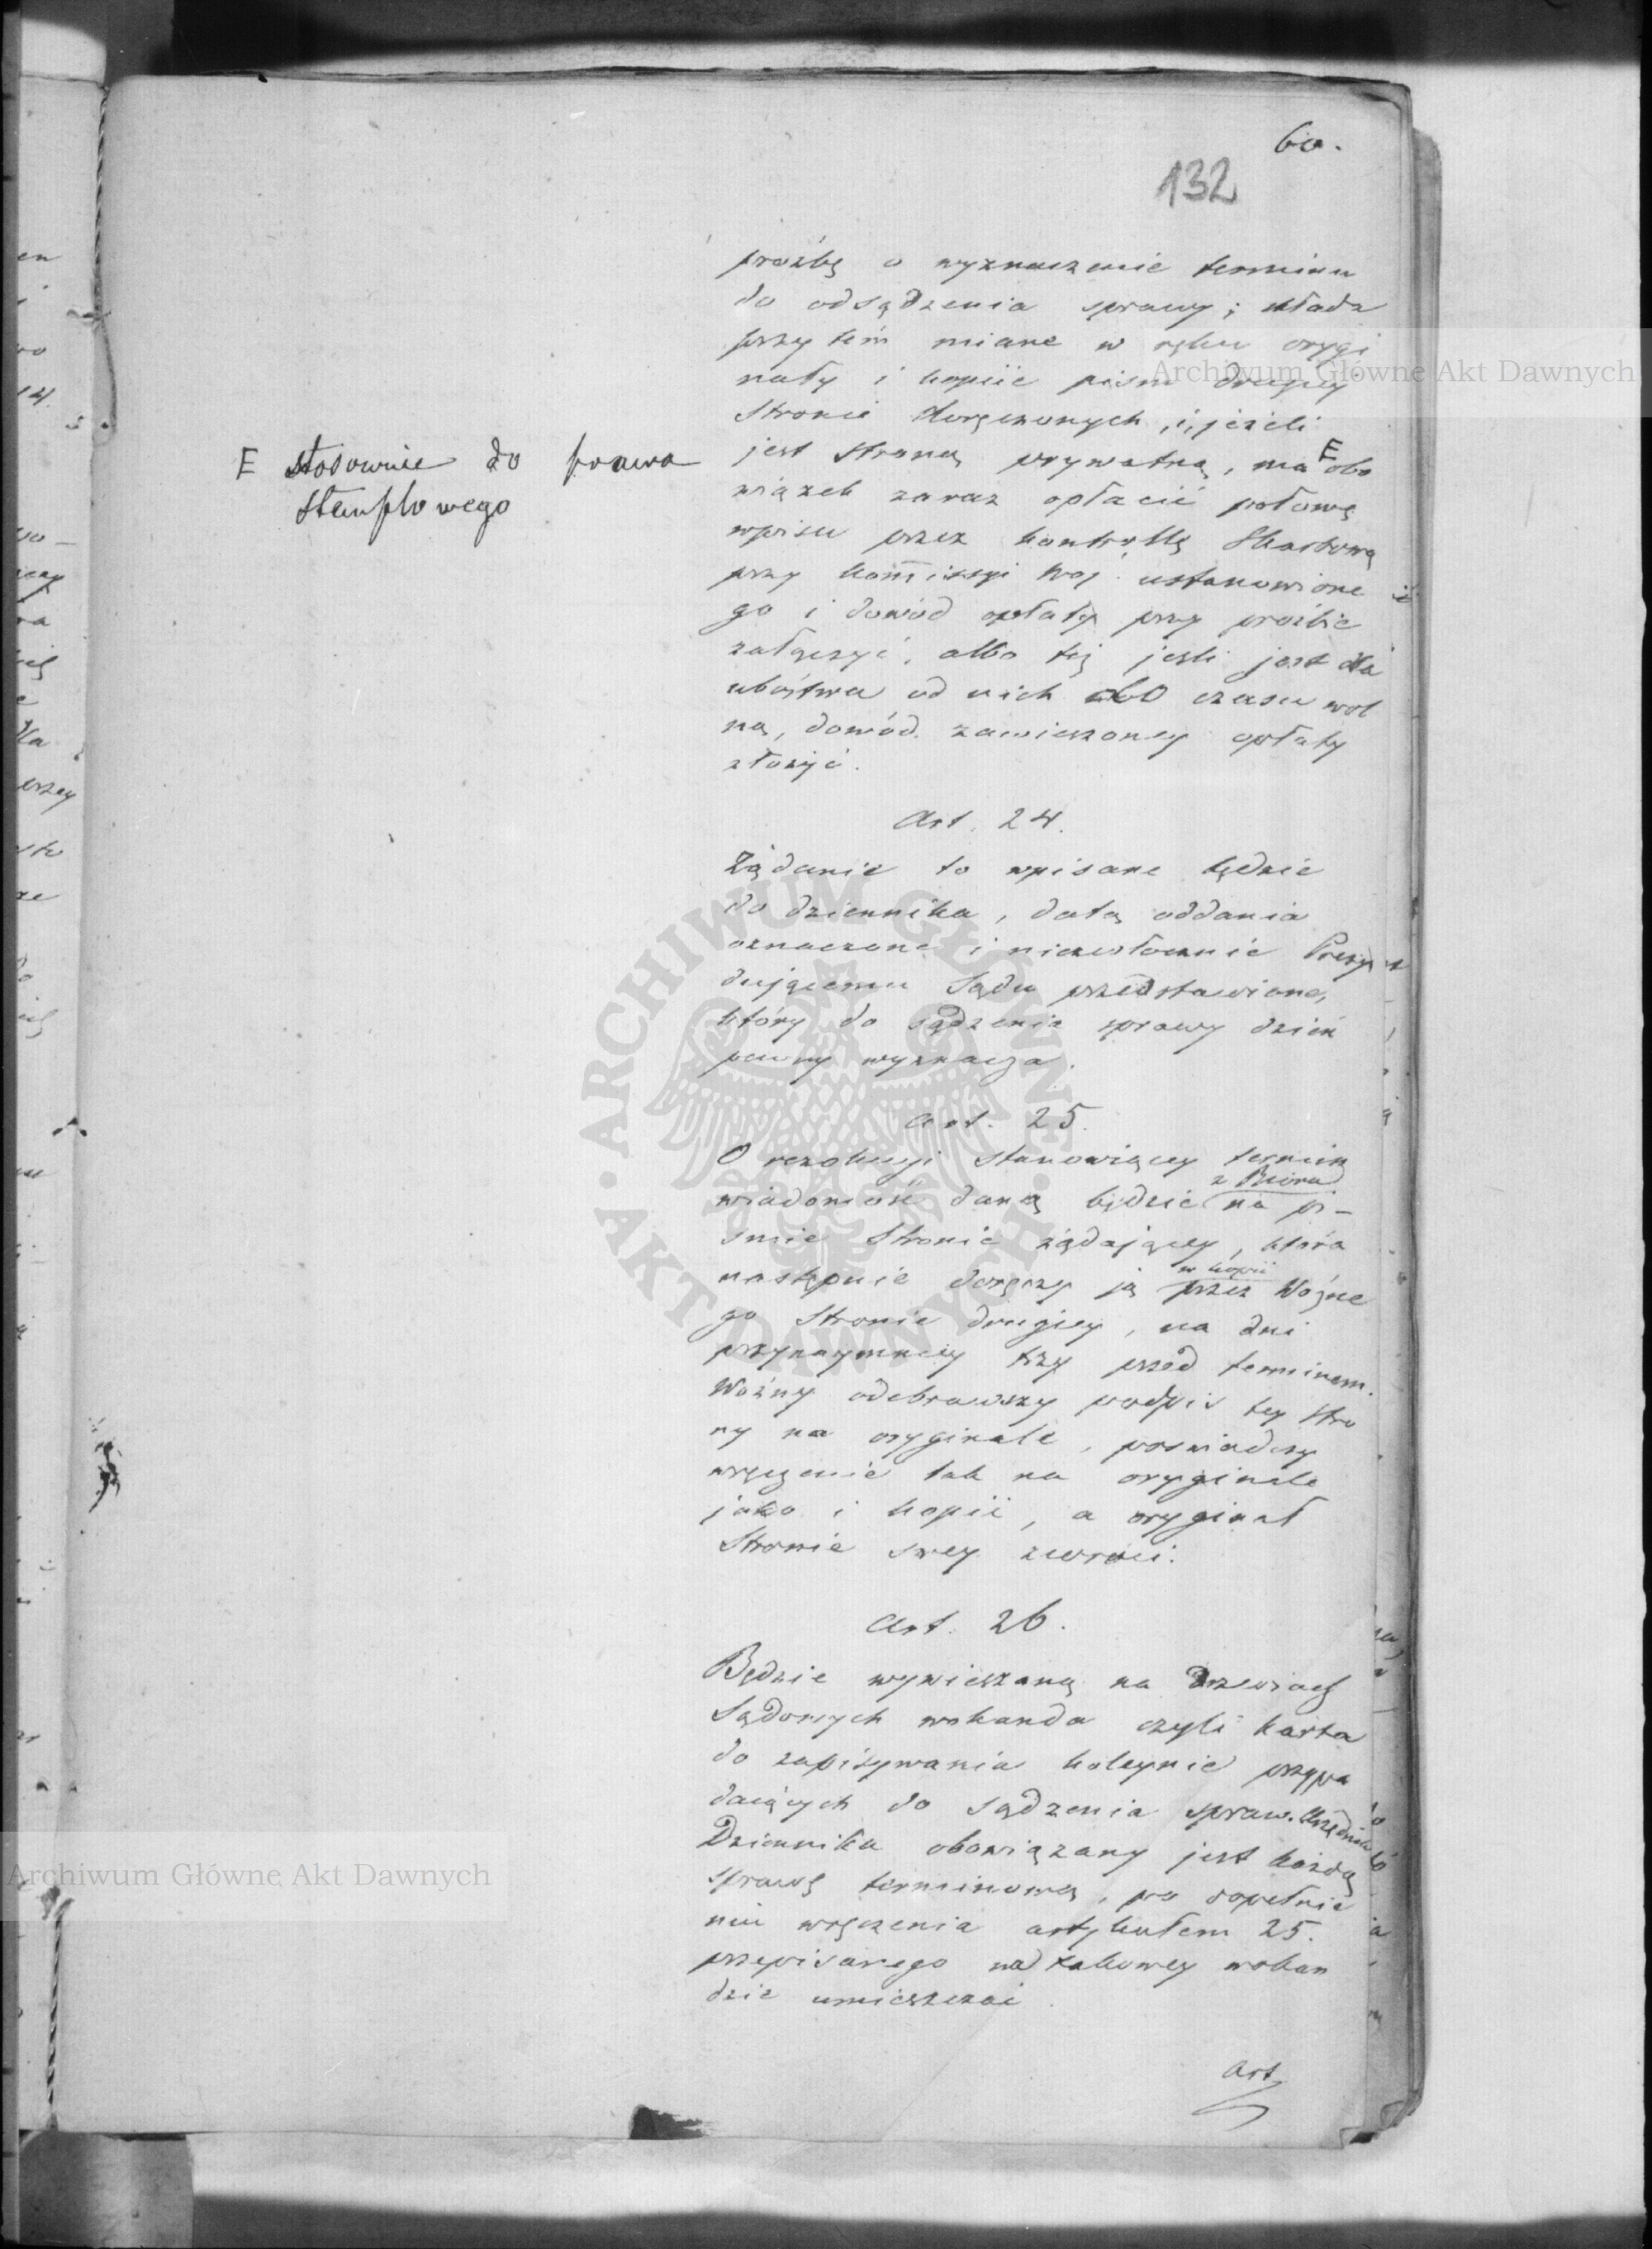 60.
132
prośbę o wyznaczenie terminu
do odsądzenia sprawy; składa
przytém miane w ręku orygi
nały i kopiie pism drugiey
stronie doręczonych, i, jeżeli
jest stroną prywatną, ma E obo
wiązek zaraz opłacić połowę
wpisu przez kontrollę Skarbową
przy kommissyi Woj. ustanowione
go i dowód opłaty przy prośbie
załączyć, albo też jeśli jest dla
ubóstwa od nich do czasu wol
ną, dowód zawieszoney opłaty
złożyć.
E stosownie do prawa
stemplowego
Art. 24.
Żądanie to wpisane będzie
do dziennika, datą oddania
oznaczone i niezwłocznie Prezy
dującemu Sądu przedstawione,
który do sądzenia sprawy dzień
pewny wyznacza.
Art. 25.
O rezolucyi stanowiącey termin
z Biora
wiadomość daną będzie na pi-
smie stronie żądającey, która
w kopii
następnie doręczy ją przez Woźne
go stronie drugiey, na dni
przynaymniey trzy przed terminem.
Woźny odebrawszy podpis tey stro
ny na oryginale, poswiadczy
wręczenie tak na oryginale
jako i kopii, a oryginał
Stronie swey zwróci.
Art. 26.
Będzie wywieszaną na drzwiach
Sądowych wokanda czyli karta
do zapisywania koleynie przypa
daiących do sądzenia spraw. Urzędnik
Dziennika obowiązany jest każdą
sprawę terminową, po dopełnie
niu wręczenia artykułem 25.
przepisanego na takowey wokan
dzie umieszczać.
Art
Archiwum Główne Akt Dawnych
ARCHIWUM GŁÓWNE AKT DAWNYCH
Archiwum Główne Akt Dawnych